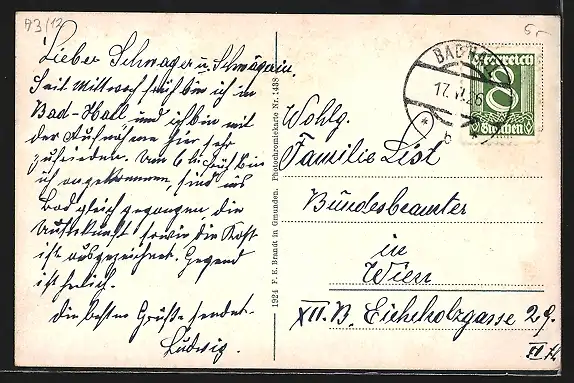 93/13
5.-
Lieber Schwager u. Schwägerin.
Seit Mittwoch früh bin ich in
Bad-Hall und ich bin mit
der Aufnahme hier sehr
zufrieden. Um 6 h früh bin
ich angekommen, sind ins
Bad gleich gegangen die
Unterkunft sowie die Kost
ist ausgezeichnet. Gegend
ist herlich.
die besten Grüße sendet
Ludwig.
1924 F. E. Brandt in Gmunden. Photochromiekarte Nr. 1438
BAD HALL
17.V.26
* b *
Österreich
8
Groschen
Wohlg.
Familie List
Bundesbeamter
in
Wien
XII. B. Eichholzgasse 29.